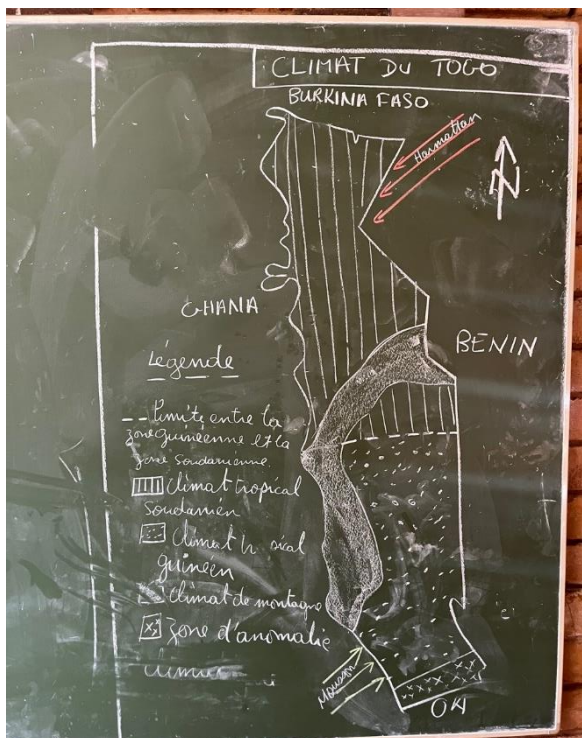 CLIMAT DU TOGO
BURKINA FASO
Harmattan
N
GHANA
BENIN
Légende
limite entre la
zone guinéenne et la
zone soudanienne.
Climat tropical
Soudanien
Climat
guinéen
Climat de montagne
Zone d'anomalie
Mousson